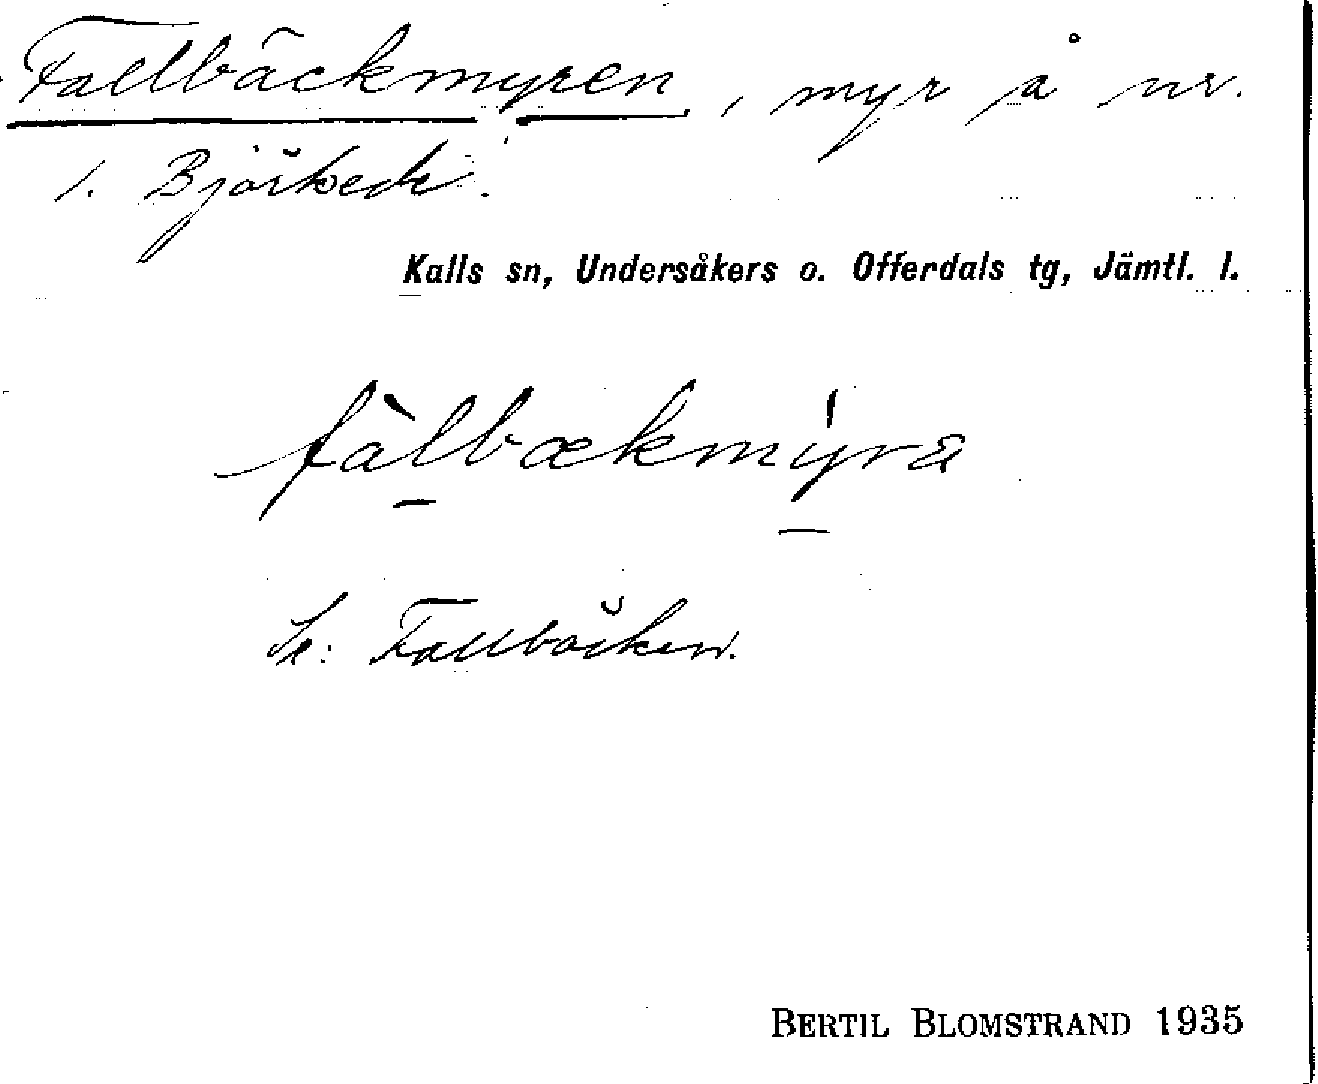 Fallbäckmyren, myr å nr.
1. Björkede.
Kalls sn, Undersåkers o. Offerdals tg, Jämtl. l.
fàlbækmýra
Se: Fallbäcken.
BERTIL BLOMSTRAND 1935